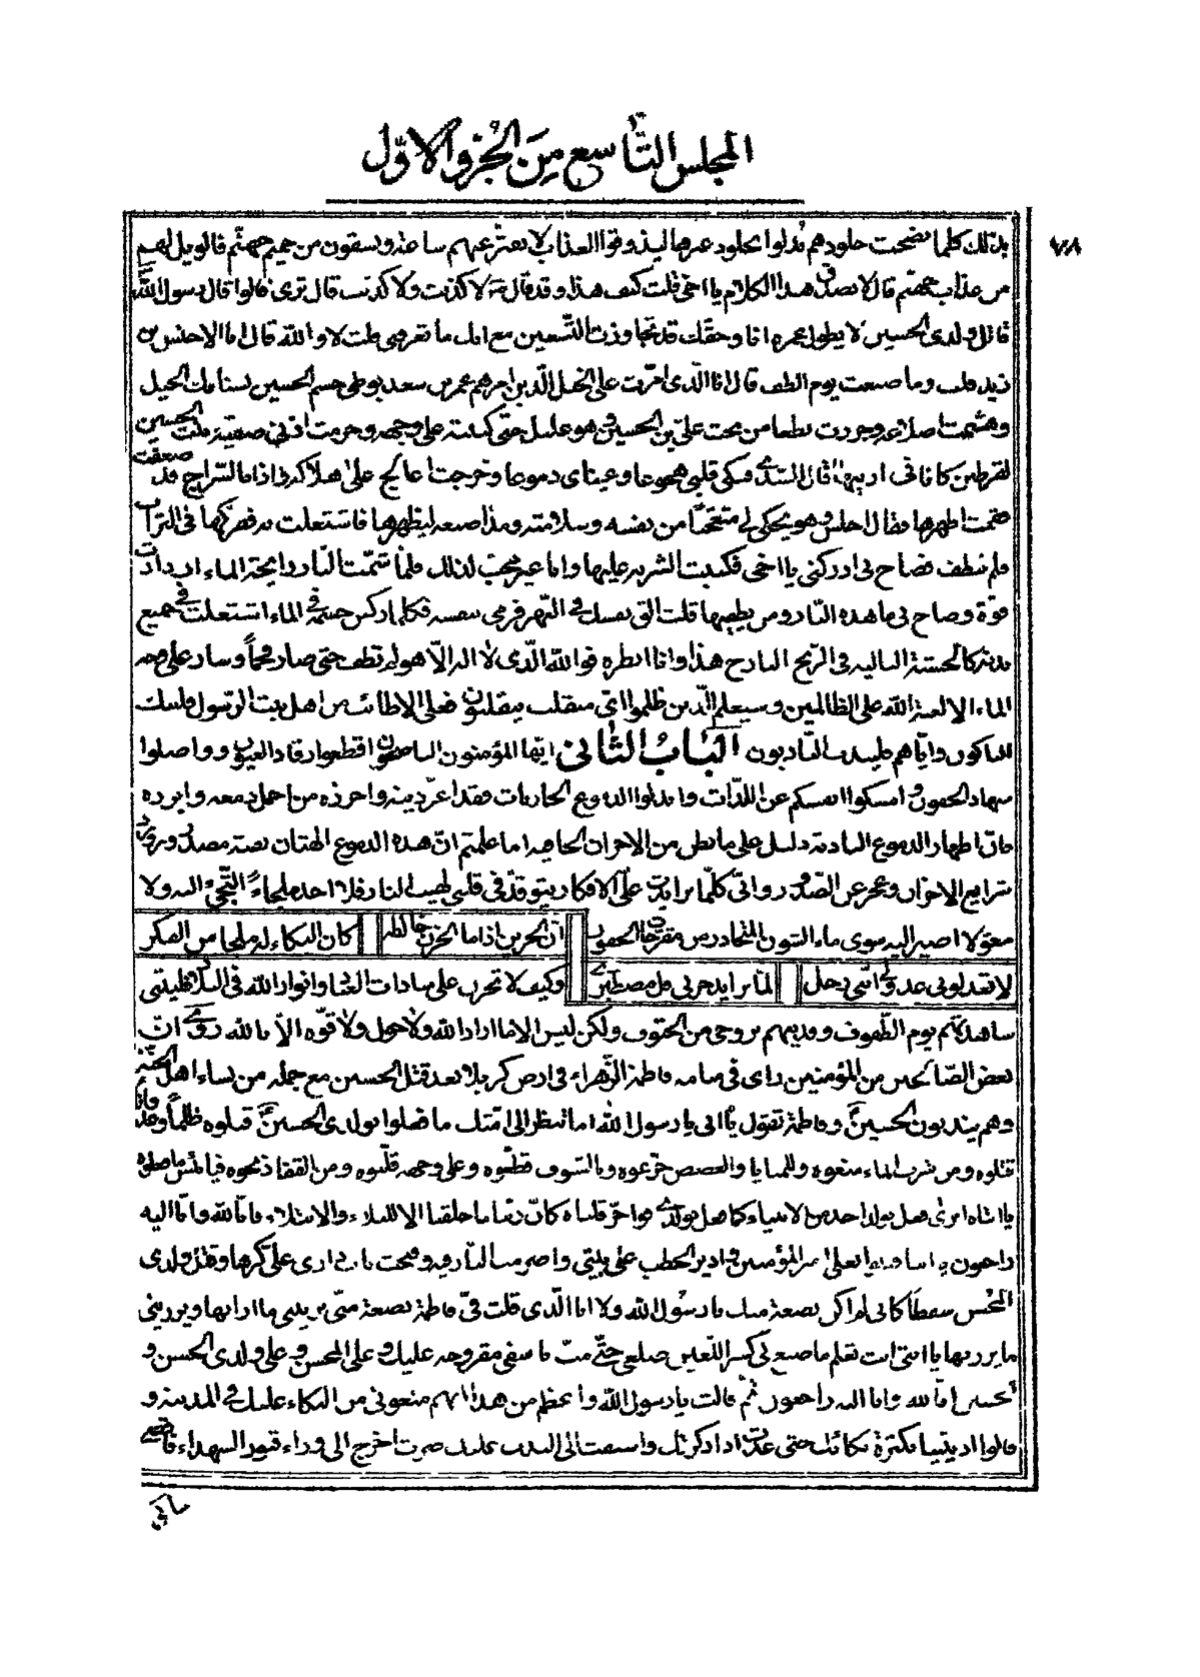 المجلس التاسع من الجزو الاول
٧٨
بذلك كلما نضجت جلودهم بدلوا بجلود غيرها ليذوقوا العذاب لا يفتر عنهم ساعة ويسقون من حميم جهنم فالويل لهم
من عذاب جهنم قال لا تصدق هذا الكلام يا اخي قلت كيف هذا وقد قال لا كذبت ولا كذبت قال ترى قالوا قال رسول الله
قاتل ولدي الحسين لا يطول عمره انا وحقك قد تجاوزت التسعين مع انك ما تعرفني قلت لا والله قال انا الاخنس بن
زيد قلت وما صنعت يوم الطف قال انا الذي امرت على الخيل الذين امرهم عمر بن سعد بوطي جسم الحسين بسنابك الخيل
وهشمت اضلاعه وجررت نطعا من تحت علي بن الحسين وهو عليل حتى كببته على وجهه وخرمت اذني صفية بنت الحسين
لقرطين كانا في اذنيها قال السدي فبكى قلبي هجوعا وعيناي دموعا وخرجت اعالج على هلاكه واذا بالسراج قد ضعفت
فقمت اظهرها فقال اجلس وهو يحكي لي متعجبا من نفسه وسلامته ومد اصبعه ليظهرها فاشتعلت به ففركها في التراب
فلم تنطف فصاح بي ادركني يا اخي فكببت الشربة عليها وانا غير محب لذلك فلما شمت النار رايحة الماء ازدادت
قوة وصاح بي ما هذه النار ومن يطفيها قلت الق نفسك في النهر فرمى بنفسه فكلما ركس جسمه في الماء اشتعلت في جميع
بدنه كالخشبة البالية في الريح البارح هذا وانا انظره فوالله الذي لا اله الا هو لم تطف حتى صار فحما وسار على وجه
الماء الا لعنة الله على الظالمين وسيعلم الذين ظلموا اي منقلب ينقلبون فعلى الاطائب من اهل بيت الرسول فليبك
الباكون واياهم فليندب النادبون الباب الثاني ايها المؤمنون اقطعوا رقاد العيون وواصلوا
سهاد الجفون وامسكوا انفسكم عن اللذات وابذلوا الدموع الجاريات فقد اعز دينه واحرزه من اهمل دمعه وابرزه
فان اظهار الدموع دليل على ما بطن من الاحزان اما علمتم ان هذه الدموع الهتان
الاحزان وعجز عن الصدور واني كلما تزايدت علي الافكار يتوقد في قلبي لهيب النار فلا اجد ملجاء التجئ اليه ولا
معولا اصير اليه سوى ماء الشؤن المتحادر من مقرحات الجفون
ان الحزين اذا ما الحزن خالطه
كان البكاء له ملجا من الفكر
لا تعذلوني عذولي انني رجل
لما تزايد حزني قل مصطبري
وكيف لا تحزن على سادات الفنا وانوار الله في البلاد فليتني
شاهدتهم يوم الطفوف وفديتهم بروحي من الحتوف ولكن ليس الا ما اراد الله ولا حول ولا قوة الا بالله روي ان
بعض الصالحين من المؤمنين راى في منامه فاطمة الزهراء في ارض كربلا بعد قتل الحسين مع جملة من نساء اهل الجنة
وهم يندبون الحسين وفاطمة تقول يا ابي يا رسول الله اما تنظر الى امتك ما فعلوا بولدي الحسين قتلوه ظلما وعدوانا
قتلوه ومن شرب الماء منعوه وللمنايا والغصص جرعوه وبالسيوف قطعوه وعلى وجهه قلبوه ومن القفا ذبحوه فيا لبئس ما صنعوه
يا ابتاه ارى فعل بولد احد من الانبياء كما فعل بولدي فواحر قلباه كان ربنا ما خلقنا الا للبلاء والابتلاء فانا لله وانا اليه
راجعون امير المؤمنين وادير الحطب على بيتي واضرمت النار فيه وفتحت باب داري علي كرها وقتل ولدي
المحسن سقطا كاني لم اكن بضعة منك يا رسول الله ولا انا الذي قلت في فاطمة بضعة مني يريبني ما ارابها ويرديني
ما يرديها يا ابتي انت تعلم ما صنع بي كسر اللعين ضلعي حتى مت فاسفي مقروحة عليك وعلى المحسن وعلى ولدي الحسن و
الحسين انا لله وانا اليه راجعون ثم قالت يا رسول الله واعظم من هذا انهم منعوني من البكاء عليك في المدينة و
قالوا اذيتينا بكثرة بكائك حتى عدت اذا ذكرتك واشتقت الى الندب عليك صرت اخرج الى وراء قبور الشهداء فاقضي